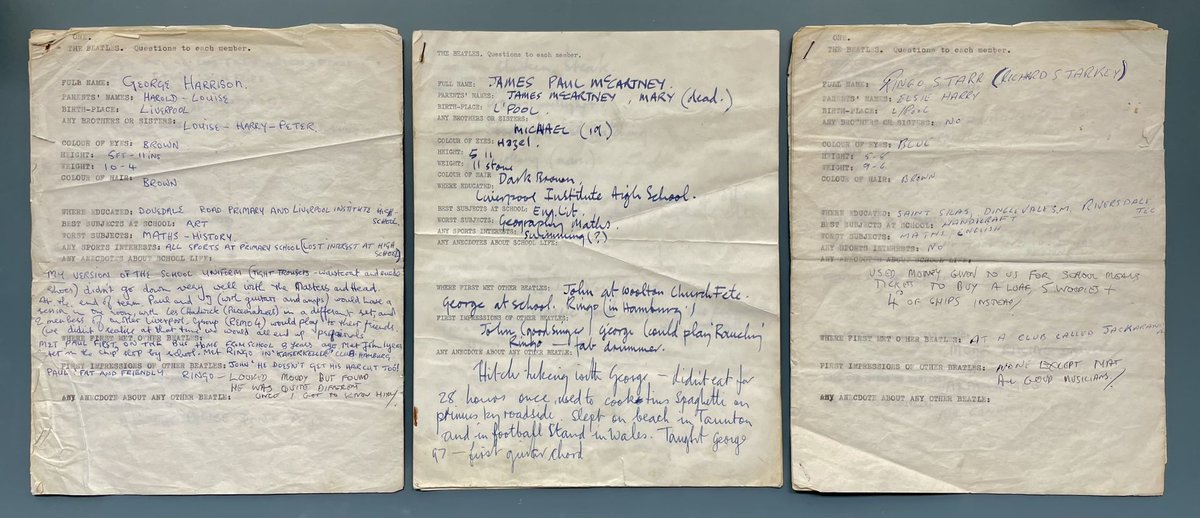 ONE.
THE BEATLES. Questions to each member.
FULL NAME: GEORGE HARRISON.
PARENTS' NAMES: HAROLD - LOUISE
BIRTH-PLACE: LIVERPOOL
ANY BROTHERS OR SISTERS:
LOUISE - HARRY - PETER.
COLOUR OF EYES: BROWN
HEIGHT: 5FT - 11 INS
WEIGHT: 10-4
COLOUR OF HAIR:
BROWN
WHERE EDUCATED: DOVSDALE ROAD PRIMARY AND LIVERPOOL INSTITUTE HIGH-
SCHOOL.
BEST SUBJECTS AT SCHOOL: ART
WORST SUBJECTS: MATHS - HISTORY.
ANY SPORTS INTERESTS: ALL SPORTS AT PRIMARY SCHOOL (LOST INTREST AT HIGH
SCHOOL)
ANY ANECDOTES ABOUT SCHOOL LIFE:
MY VERSION OF THE SCHOOL UNIFORM (TIGHT TROUSERS - waistcoat and suede
shoes) didn't go down very well with the Masters and Head.
At the end of term Paul and I (with guitars and amps) would have a
session in my room, with Les Chadwick (Pacemakers) in a different set, and
2 members of another Liverpool Group (REMO 4) would play to their friends.
(we didn't realise at that time we would all end up
WHERE FIRST MET OTHER BEATLES:
MET PAUL FIRST, ON THE BUS HOME FROM SCHOOL 9 YEARS AGO. Met John
in the 'chip' shop by school. Met RINGO IN 'KAISERKELLER' CLUB HAMBURG
FIRST IMPRESSIONS OF OTHER BEATLES: JOHN 'HE DOESN'T GET HIS HAIRCUT TOO!
PAUL 'FAT AND FRIENDLY RINGO - LOOKED MOODY BUT FOUND
HE WAS QUITE DIFFERENT
ONCE I GOT TO KNOW HIM!
ANY ANECDOTE ABOUT ANY OTHER BEATLE:
THE BEATLES. Questions to each member.
FULL NAME: JAMES PAUL McCARTNEY
PARENTS' NAMES: JAMES McCARTNEY, MARY (dead.)
BIRTH-PLACE: L'POOL
ANY BROTHERS OR SISTERS:
MICHAEL (19)
COLOUR OF EYES: Hazel.
HEIGHT: 5 11
WEIGHT: 11 stone
COLOUR OF HAIR Dark Brown,
WHERE EDUCATED:
Liverpool Institute High School.
BEST SUBJECTS AT SCHOOL: Eng. Lit.
WORST SUBJECTS: Geography Maths.
ANY SPORTS INTERESTS: Swimming (?)
ANY ANECDOTES ABOUT SCHOOL LIFE:
WHERE FIRST MET OTHER BEATLES: John at Woolton Church Fete.
George at school. Ringo (in Hamburg)
FIRST IMPRESSIONS OF OTHER BEATLES:
John (good singer) George (could play 'Raunchy')
Ringo - fab drummer.
ANY ANECDOTE ABOUT ANY OTHER BEATLE:
Hitch hiking with George - didn't eat for
28 hours once, used to cook tins spaghetti on
primus by roadside. Slept on beach in Taunton
and in football stand in Wales. Taught George
G7 - first guitar chord
ONE.
THE BEATLES. Questions to each member.
FULL NAME: RINGO STARR (RICHARD STARKEY)
PARENTS' NAMES: ELSIE HARRY
BIRTH-PLACE: L/POOL
ANY BROTHERS OR SISTERS: NO
COLOUR OF EYES: BLUE
HEIGHT: 5-8
WEIGHT: 9-6
COLOUR OF HAIR: BROWN
WHERE EDUCATED: SAINT SILAS, DINGLEVALE S.M. RIVERSDALE
TEC
BEST SUBJECTS AT SCHOOL: HANDICRAFT
WORST SUBJECTS: MATHS ENGLISH
ANY SPORTS INTERESTS: NO
ANY ANECDOTES ABOUT SCHOOL LIFE:
USED MONEY GIVEN TO US FOR SCHOOL MEALS
TICKETS TO BUY A LOAF, 5 WOODIES +
4 OF CHIPS INSTEAD,
WHERE FIRST MET OTHER BEATLES: AT A CLUB CALLED JACKARANDA
FIRST IMPRESSIONS OF OTHER BEATLES: NONE EXCEPT THAT
ALL GROUP MUSICIANS,
ANY ANECDOTE ABOUT ANY OTHER BEATLE: